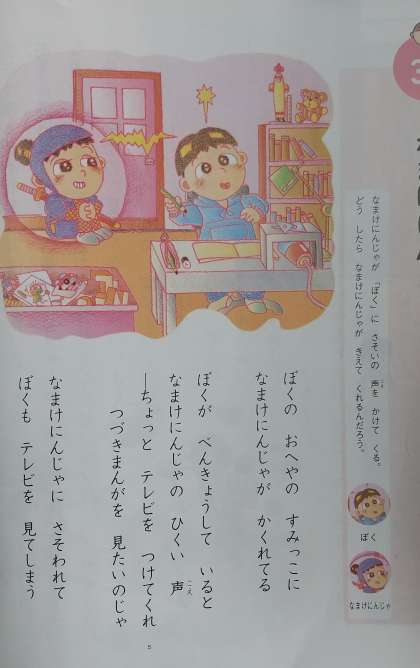 3
なまけにんじゃが 「ぼく」に さそいの 声を かけて くる。
こえ
どう したら なまけにんじゃが きえて くれるんだろう。
ぼく
なまけにんじゃ
ぼくの おへやの すみっこに
なまけにんじゃが かくれてる
ぼくが べんきょうして いると
なまけにんじゃの ひくい 声
こえ
―ちょっと テレビを つけてくれ
つづきまんがを 見たいのじゃ
なまけにんじゃに さそわれて
ぼくも テレビを 見てしまう
5